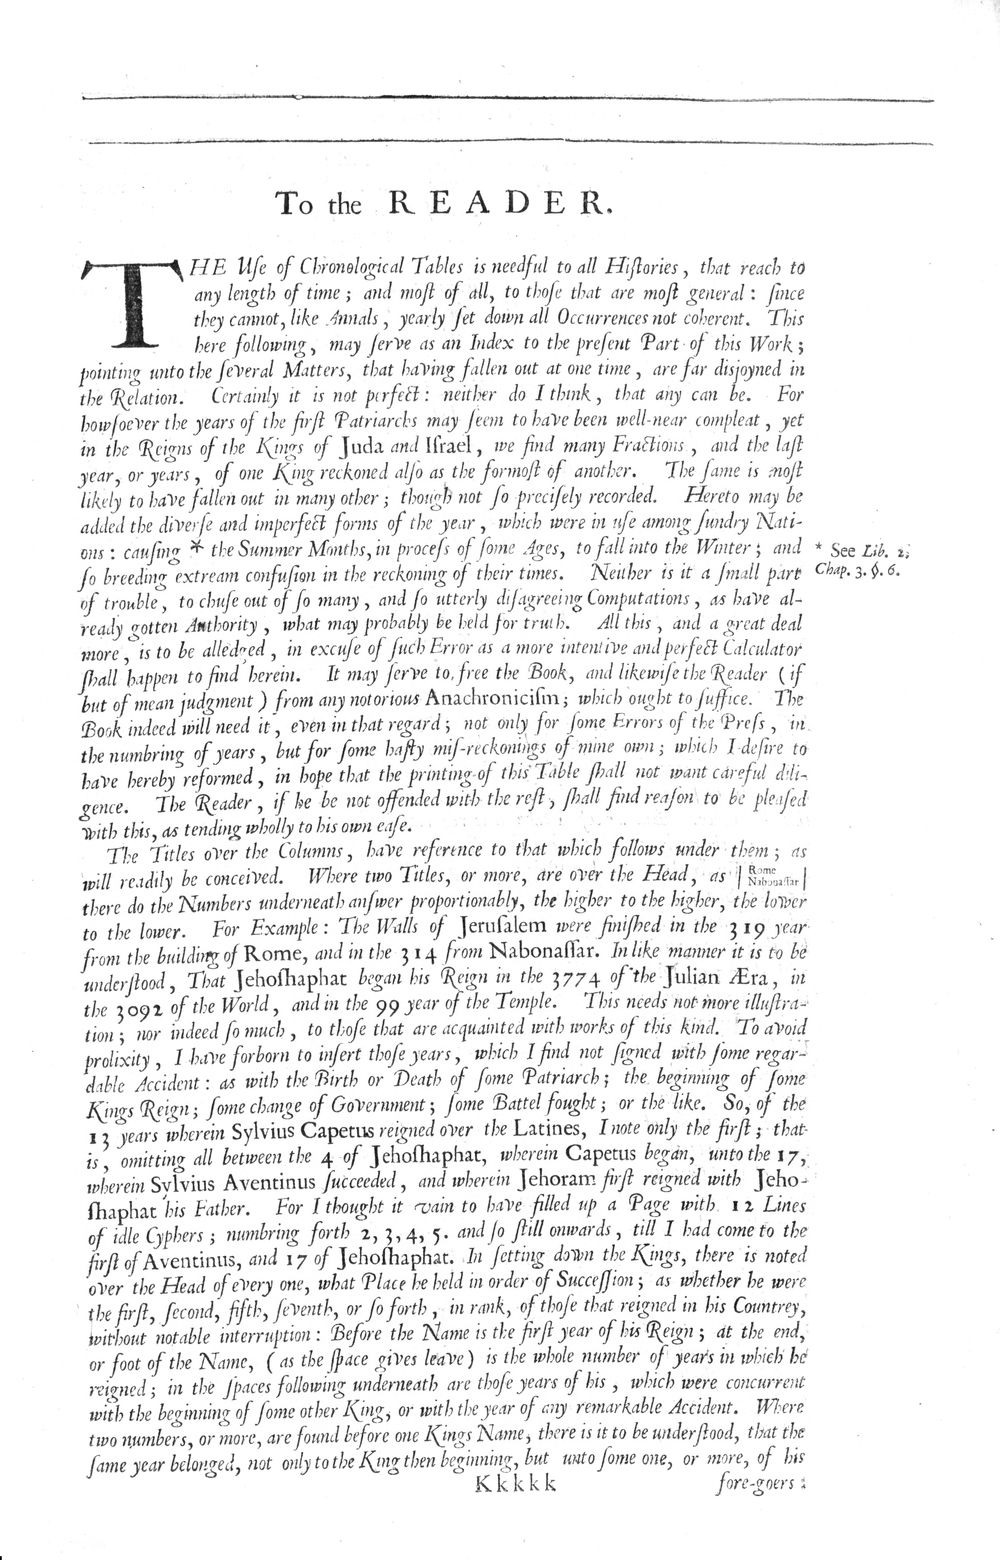 To the READER.
THE Uſe of Chronological Tables is needful to all Hiſtories, that reach to
any length of time; and moſt of all, to thoſe that are moſt general: ſince
they cannot, like Annals, yearly ſet down all Occurrences not coherent. This
here following, may ſerve as an Index to the preſent Part of this Work;
pointing unto the ſeveral Matters, that having fallen out at one time, are far disjoyned in
the Relation. Certainly it is not perfect: neither do I think, that any can be. For
howſoever the years of the firſt Patriarchs may ſeem to have been well-near compleat, yet
in the Reigns of the Kings of Juda and Iſrael, we find many Fractions, and the laſt
year, or years, of one King reckoned alſo as the formoſt of another. The ſame is moſt
likely to have fallen out in many other; though not ſo preciſely recorded. Hereto may be
added the diverſe and imperfect forms of the year, which were in uſe among ſundry Nati-
ons: cauſing * the Summer Months, in proceſs of ſome Ages, to fall into the Winter; and
ſo breeding extream confuſion in the reckoning of their times. Neither is it a ſmall part
* See Lib. 2.
Chap. 3. §. 6.
of trouble, to chuſe out of ſo many, and ſo utterly diſagreeing Computations, as have al-
ready gotten Authority, what may probably be held for truth. All this, and a great deal
more, is to be alledged, in excuſe of ſuch Error as a more intentive and perfect Calculator
ſhall happen to find herein. It may ſerve to free the Book, and likewiſe the Reader (if
but of mean judgment) from any notorious Anachroniciſm; which ought to ſuffice. The
Book indeed will need it, even in that regard; not only for ſome Errors of the Preſs, in
the numbring of years, but for ſome haſty miſ-reckonings of mine own; which I deſire to
have hereby reformed, in hope that the printing of this Table ſhall not want careful dili-
gence. The Reader, if he be not offended with the reſt, ſhall find reaſon to be pleaſed
with this, as tending wholly to his own eaſe.
The Titles over the Columns, have reference to that which follows under them; as
will readily be conceived. Where two Titles, or more, are over the Head, as | Rome Nabonaſſar |
there do the Numbers underneath anſwer proportionably, the higher to the higher, the lower
to the lower. For Example: The Walls of Jeruſalem were finiſhed in the 319 year
from the building of Rome, and in the 314 from Nabonaſſar. In like manner it is to be
underſtood, That Jehoſhaphat began his Reign in the 3774 of the Julian Æra, in
the 3092 of the World, and in the 99 year of the Temple. This needs not more illuſtra-
tion; nor indeed ſo much, to thoſe that are acquainted with works of this kind. To avoid
prolixity, I have forborn to inſert thoſe years, which I find not ſigned with ſome regar-
dable Accident: as with the Birth or Death of ſome Patriarch; the beginning of ſome
Kings Reign; ſome change of Government; ſome Battel fought; or the like. So, of the
13 years wherein Sylvius Capetus reigned over the Latines, I note only the firſt; that
is, omitting all between the 4 of Jehoſhaphat, wherein Capetus began, unto the 17,
wherein Sylvius Aventinus ſucceeded, and wherein Jehoram firſt reigned with Jeho-
ſhaphat his Father. For I thought it vain to have filled up a Page with 12 Lines
of idle Cyphers; numbring forth 2, 3, 4, 5. and ſo ſtill onwards, till I had come to the
firſt of Aventinus, and 17 of Jehoſhaphat. In ſetting down the Kings, there is noted
over the Head of every one, what Place he held in order of Succeſſion; as whether he were
the firſt, ſecond, fifth, ſeventh, or ſo forth, in rank, of thoſe that reigned in his Countrey,
without notable interruption: Before the Name is the firſt year of his Reign; at the end,
or foot of the Name, (as the ſpace gives leave) is the whole number of years in which he
reigned; in the ſpaces following underneath are thoſe years of his, which were concurrent
with the beginning of ſome other King, or with the year of any remarkable Accident. Where
two numbers, or more, are found before one Kings Name, there is it to be underſtood, that the
ſame year belonged, not only to the King then beginning, but unto ſome one, or more, of his
Kkkkk fore-goers: